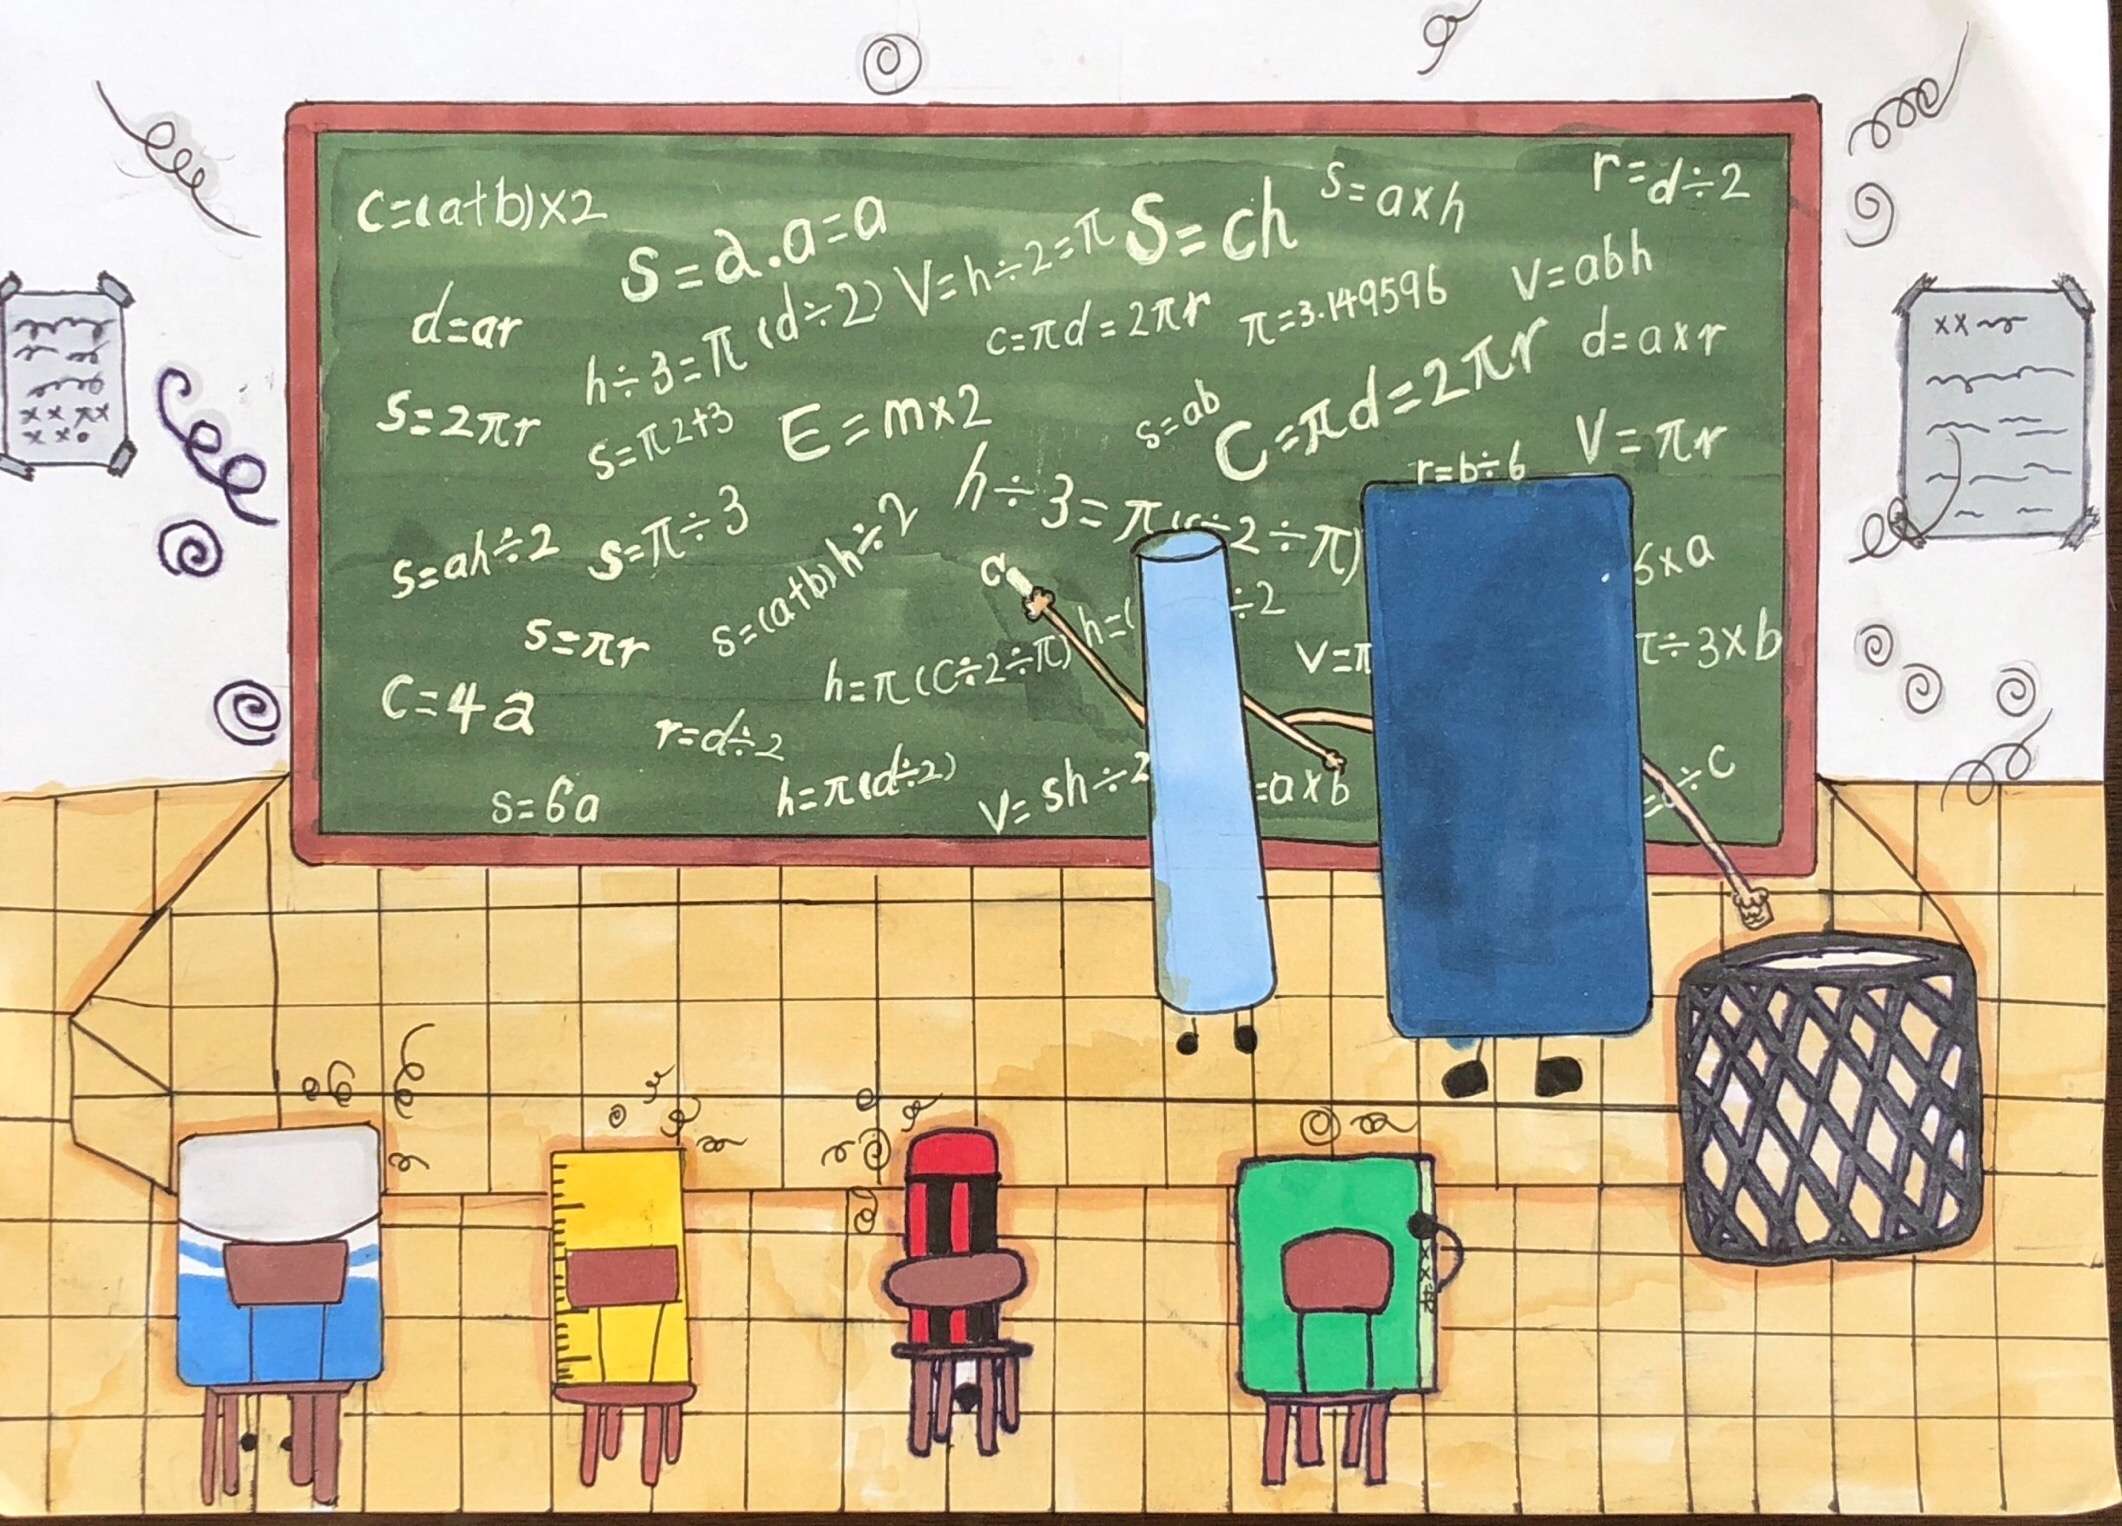 C=(a+b)×2
S=a.a=a
V=h÷2=π
S=ch
s=a×h
r=d÷2
d=ar
h÷3=π(d÷2)
c=πd=2πr
π=3.149596
V=abh
d=a×r
S=2πr
s=π2+3
E=m×2
s=ab
C=πd=2πr
V=πr
r=b÷6
s=ah÷2
s=π÷3
s=(a+b)h÷2
h÷3=π(c÷2÷π)
6×a
C
s=πr
h=π(C÷2÷π)
h=(
÷2
V=π
÷3×b
C=4a
r=d÷2
s=6a
h=π(d÷2)
V=sh÷2
=a×b
÷C
××
××
××
××